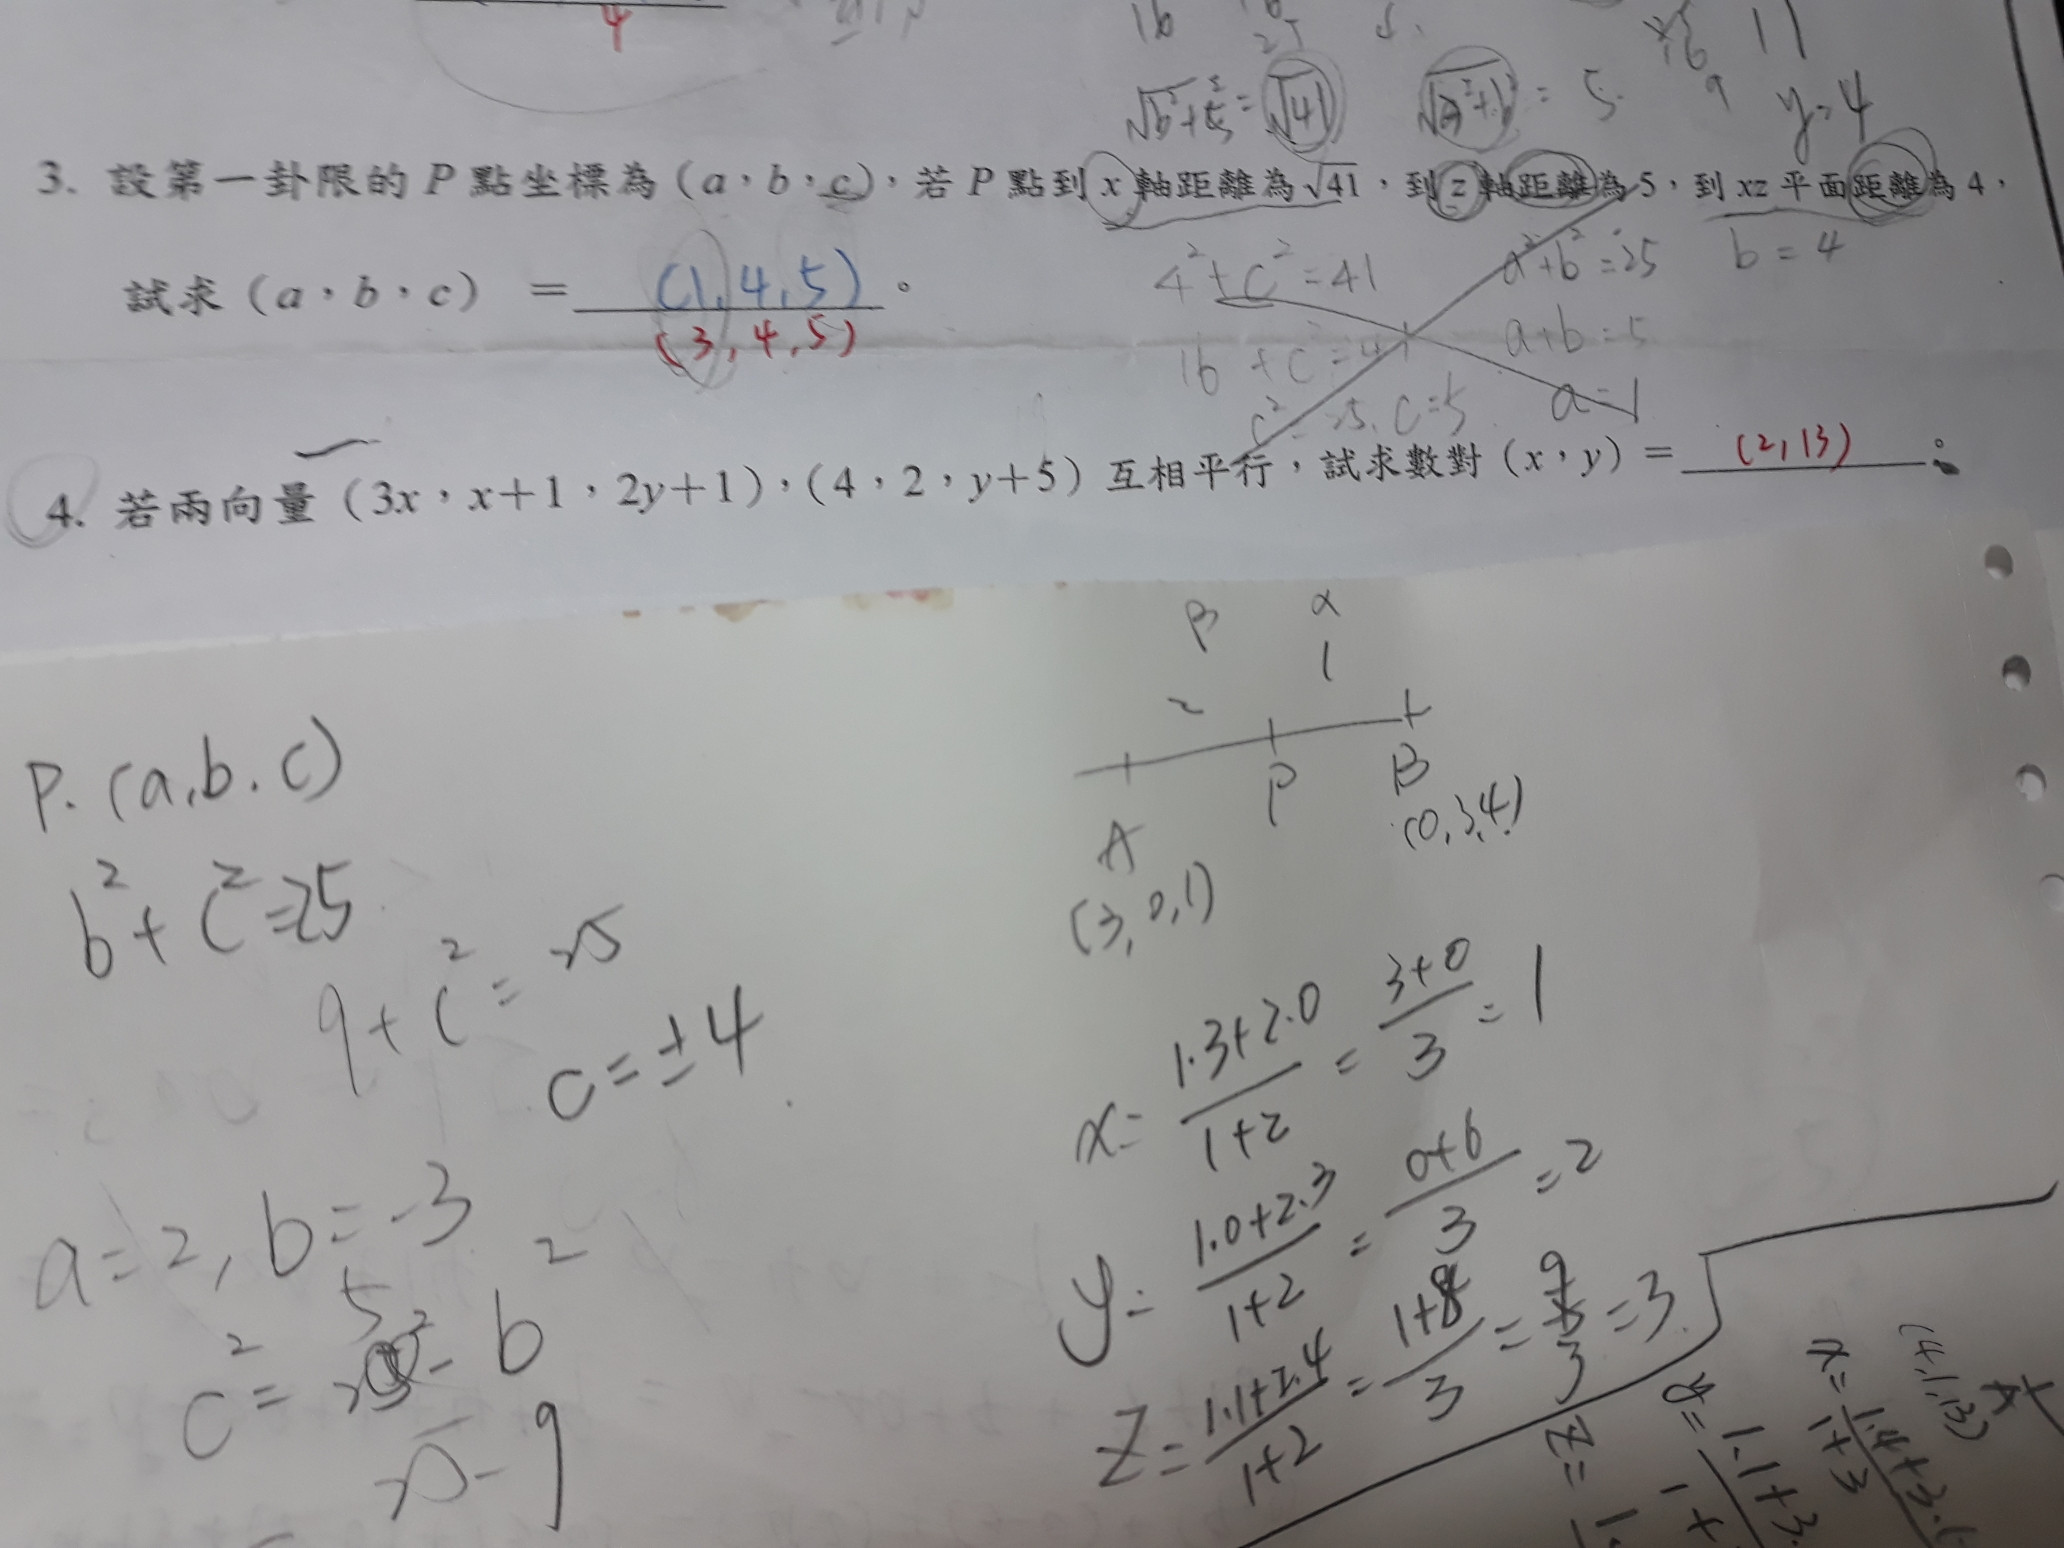 4
16
√b²+c²=√41
√a²+b² = 5
y=4
3. 設第一卦限的 P 點坐標為 (a,b,c),若 P 點到 x 軸距離為√41,到 z 軸距離為 5,到 xz 平面距離為 4,
試求 (a,b,c) = (1,4,5)。
(3,4,5)
4²+c²=41
a²+b²=25
b=4
16+c²=41
a+b=5
c²=25, c=5
a=1
4. 若兩向量 (3x,x+1,2y+1),(4,2,y+5) 互相平行,試求數對 (x,y) = (2,13)。
P.(a,b.c)
b²+c²=25
9+c²=25
c=±4
a=2, b=-3
c²=5²-b²
25-9
β α
2 1
A P B
(3,0,1) (0,3,4)
x= 1·3+2·0 / 1+2 = 3+0 / 3 = 1
y= 1·0+2·3 / 1+2 = 0+6 / 3 = 2
z= 1·1+2·4 / 1+2 = 1+8 / 3 = 9 / 3 = 3
(4,1,13)
x= 1·4+3·1 / 1+3
y= 1·1+3·
z=